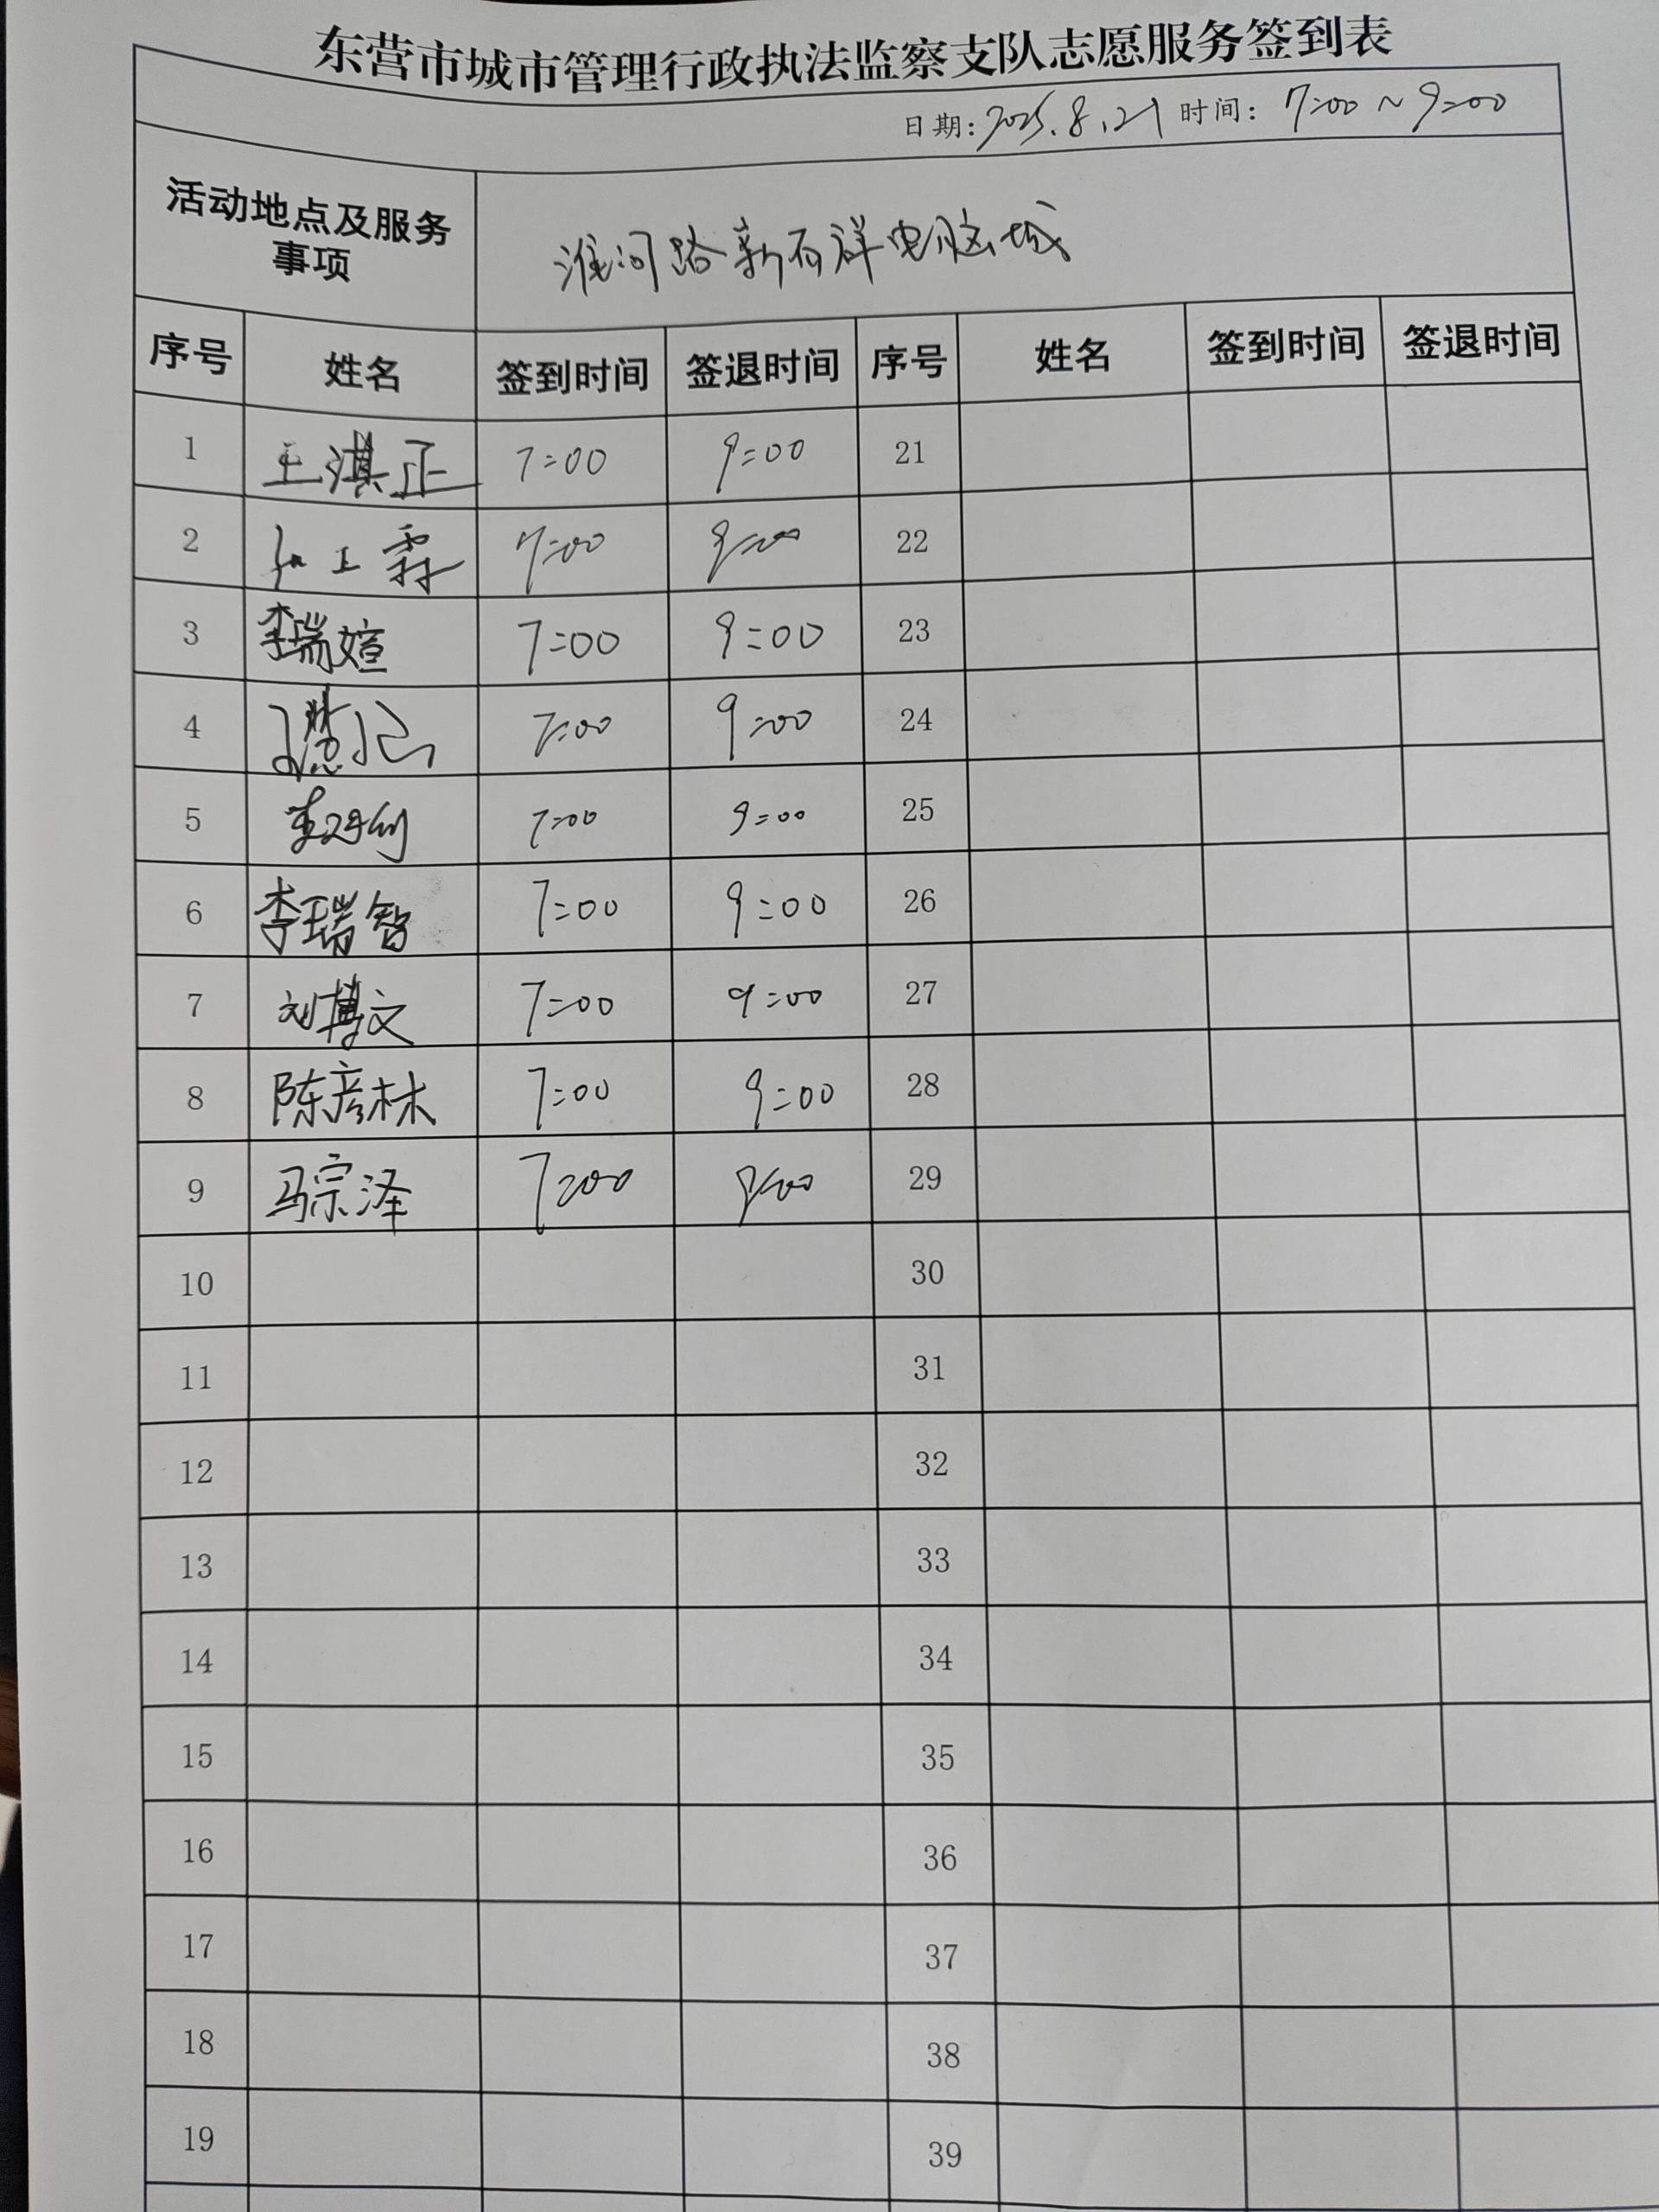 东营市城市管理行政执法监察支队志愿服务签到表
日期:2025.8.21 时间: 7:00~9:00
活动地点及服务
事项
淮河路新百祥电脑城
序号 姓名 签到时间 签退时间 序号 姓名 签到时间 签退时间
1 王淇正 7:00 9:00 21
2 7:00 9:00 22
3 李瑞媗 7:00 9:00 23
4 7:00 9:00 24
5 7:00 9:00 25
6 李瑞智 7:00 9:00 26
7 刘博文 7:00 9:00 27
8 陈彦林 7:00 9:00 28
9 马宗泽 7:00 9:00 29
10 30
11 31
12 32
13 33
14 34
15 35
16 36
17 37
18 38
19 39